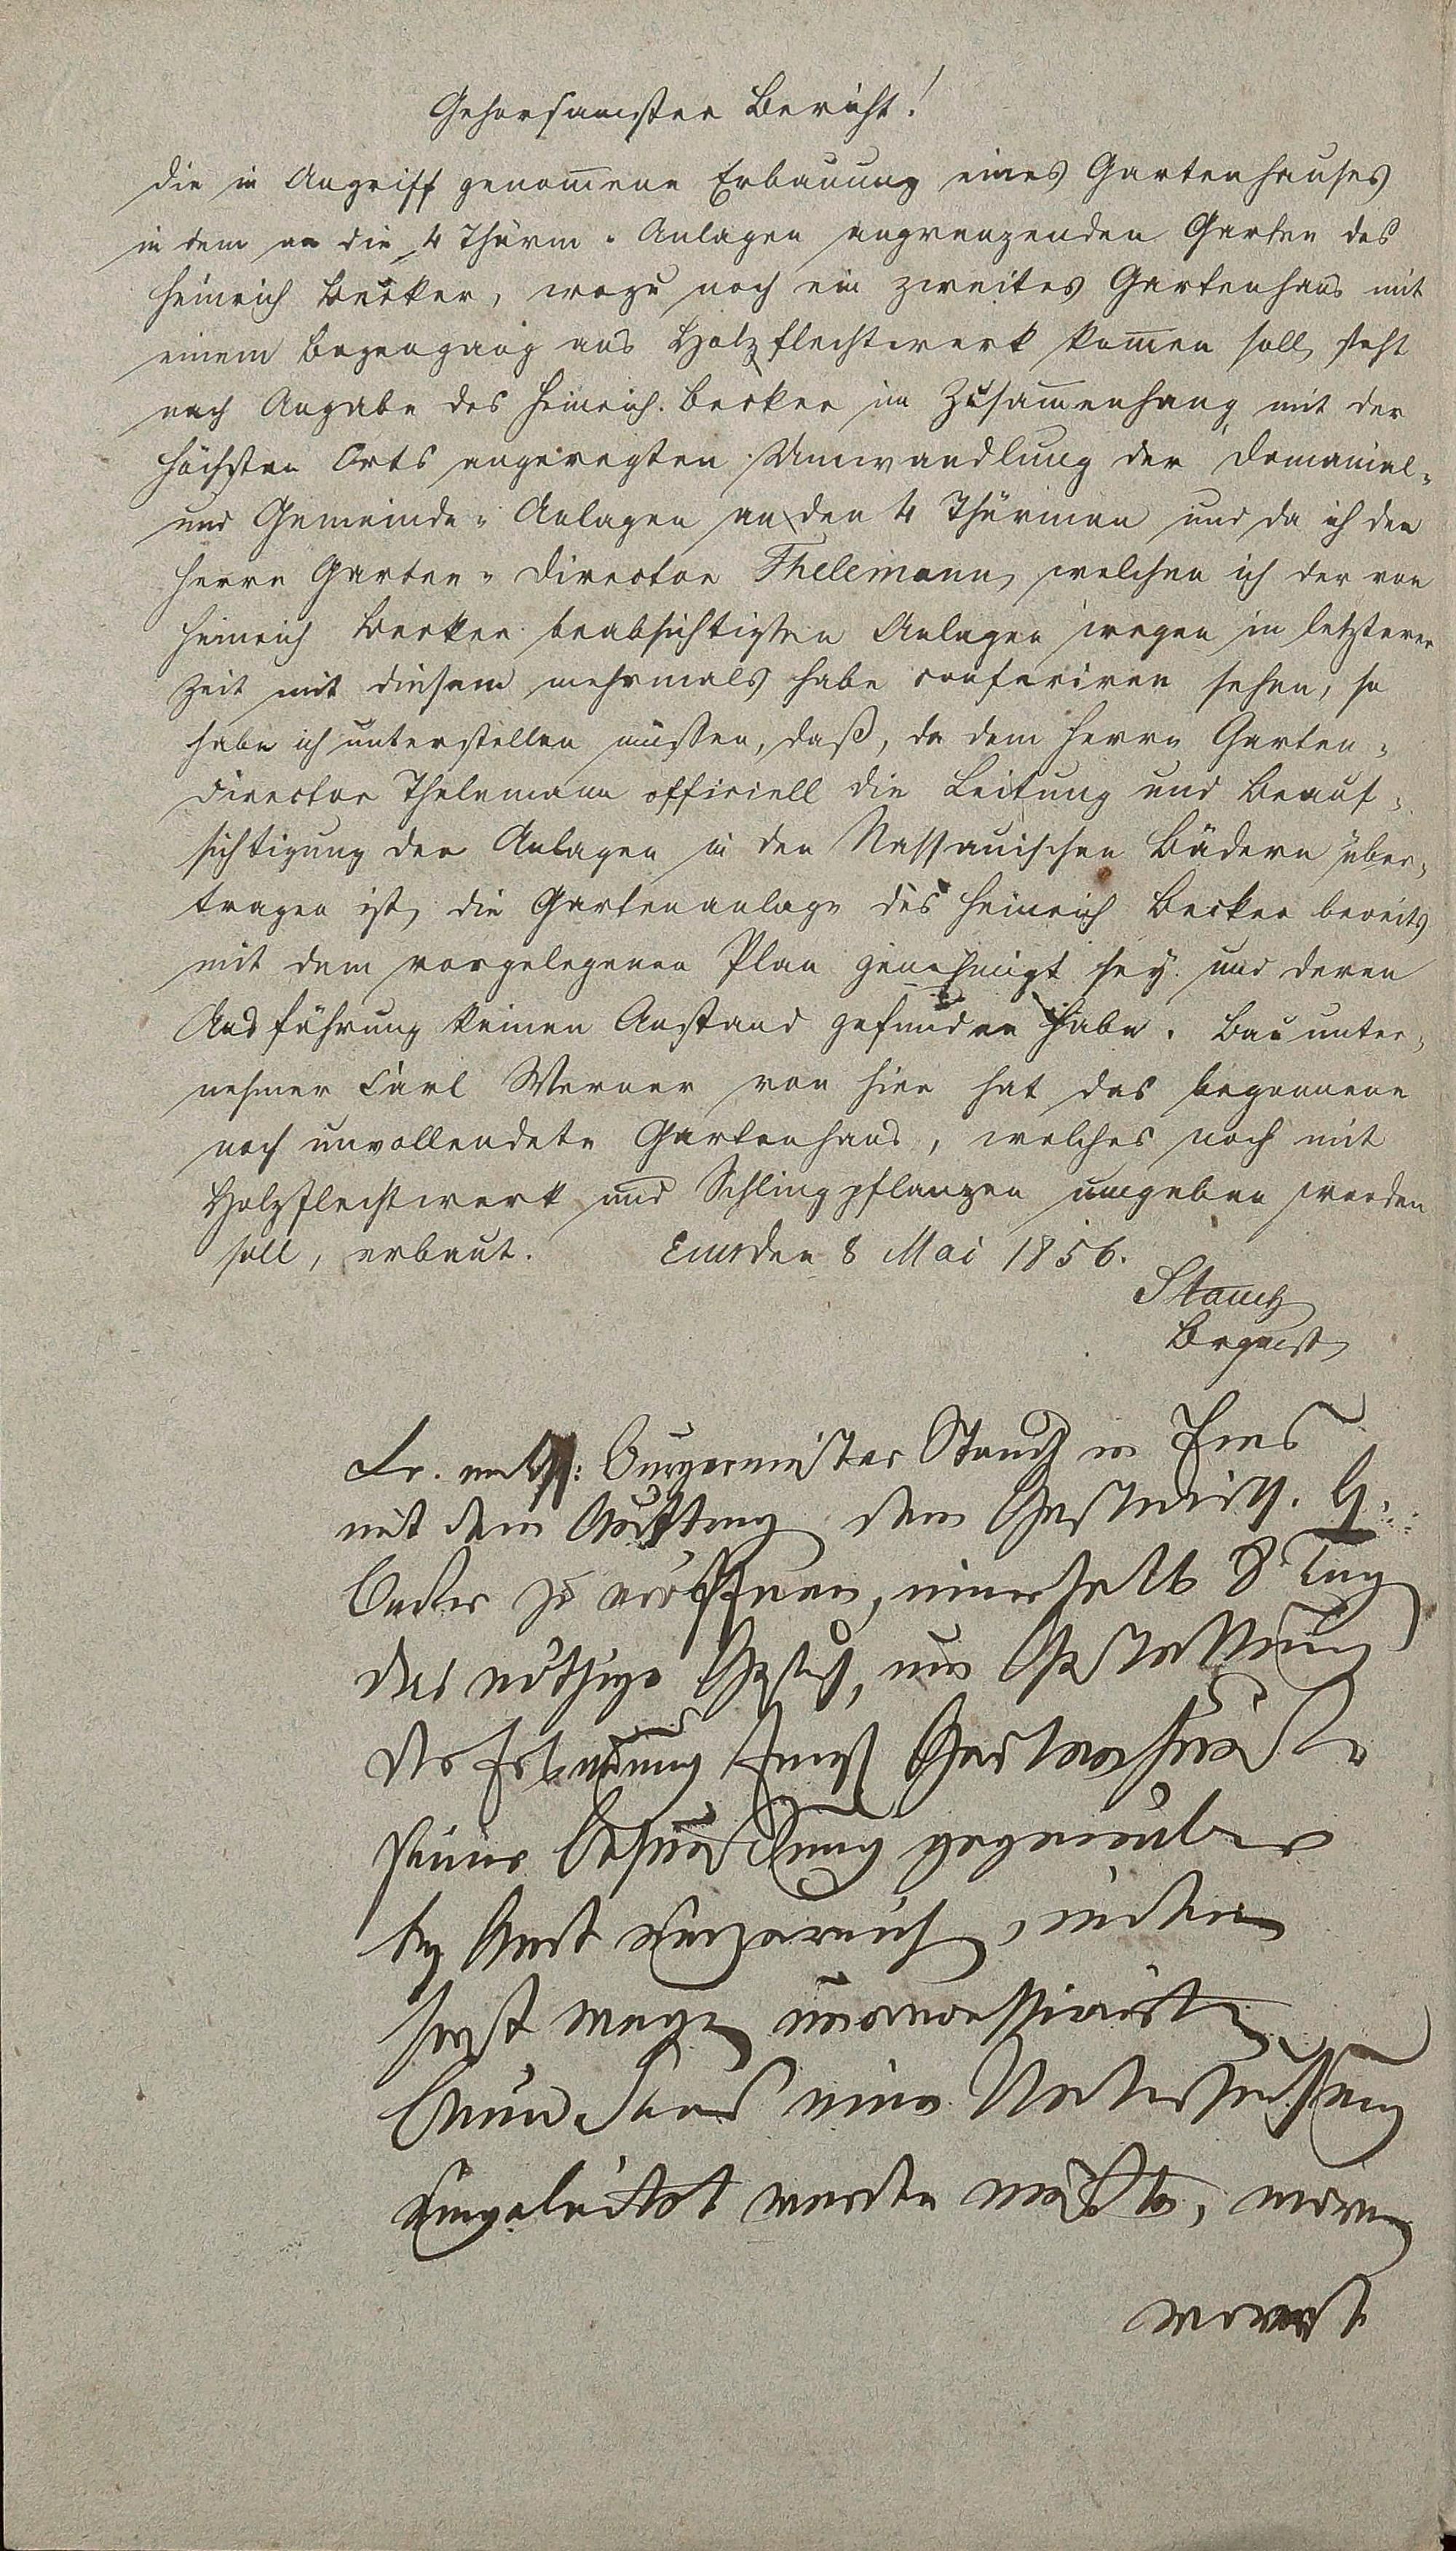 Gehorsamster Bericht!
die in Angriff genom̅ene Erbauung eines Gartenhauses
in dem an die 4 Thürm-Anlagen angrenzenden Garten des
Heinrich Becker, wozu noch ein zweites Gartenhaus mit
einem Bogengang aus Holzflechtwerk kom̅en soll, steht
nach Angabe des Heinrich Becker im Zusam̅enhang mit der
höchsten Orts angeregten Umwandlung der Domanial-
und Gemeinde-Anlagen an den 4 Thürmen und da ich den
Herrn Garten-Director Thelemann, welchen ich der von
Heinrich Becker beabsichtigten Anlagen wegen in letzterer
Zeit mit diesem mehrmals habe conferiren sehen, so
habe ich unterstellen müssen, daß, da dem Herrn Garten-
Director Thelemann officiell die Leitung und Beauf-
sichtigung der Anlagen in den Nassauischen Bädern über-
tragen ist, die Gartenanlage des Heinrich Becker bereits
mit dem vorgelegenen Plan genehmigt sey und deren
Ausführung keinen Anstand gefunden habe. Bauunter-
nehmer Carl Werner von hier hat das begonnene
noch unvollendete Gartenhaus, welches noch mit
Holzflechtwerk und Schlingpflanzen umgeben werden
soll, erbaut. Ems den 8 Mai 1856.
Stauch
Bürgermeister Stauch in Ems
mit dem Auftrag dem H.
Becker zu eröffnen, innerhalb 8 Tag
das nöthige Gesuch, um Gestattung
der Erbauung Gartenhaus
seiner Behausung gegenüber
bey Amt einzureich, indem
sonst wegen unconcessionirt
Bauwesens eine Untersuchung
eingeleitet werden müßte, wovon